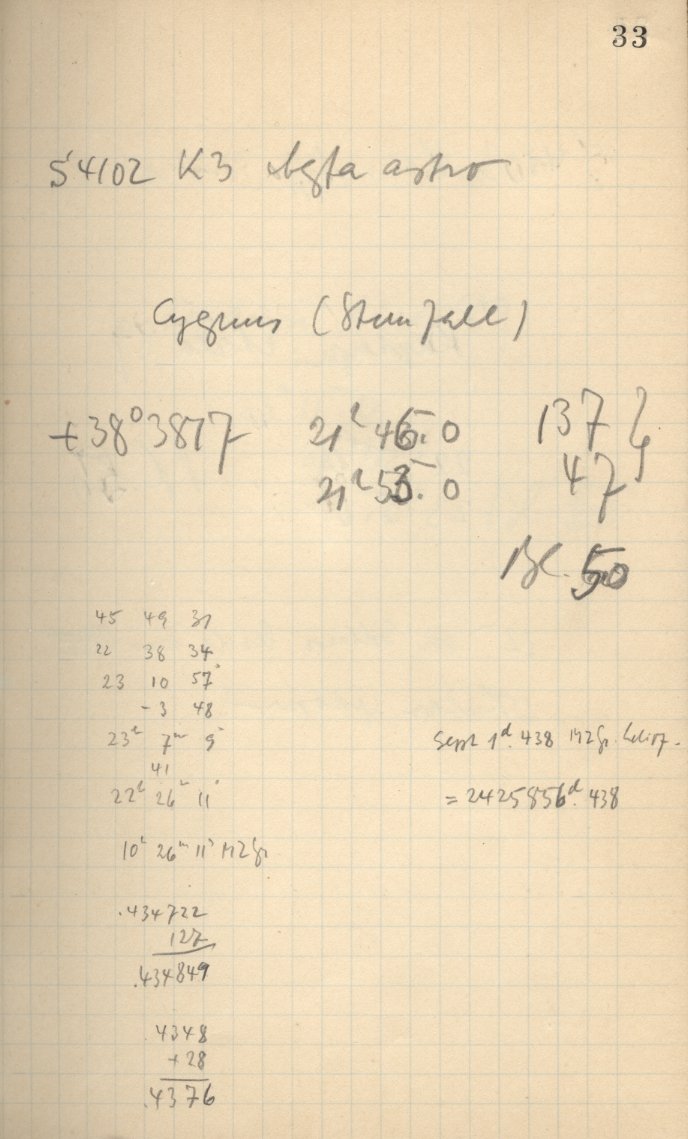 33
54102 K3 Agfa astro
Cygnus (Sternfall)
+38° 3817 21h 46.0 137 }
21h 55.0 47
Bl. 50
45 49 31
22 38 34
23 10 57
- 3 48
23h 7m 9s
41
22h 26m 11s
10h 26m 11s MZGr
.434722
127
.434849
.4348
+28
.4376
Sept 1d.438 MZGr. helioz.
= 2425856d.438